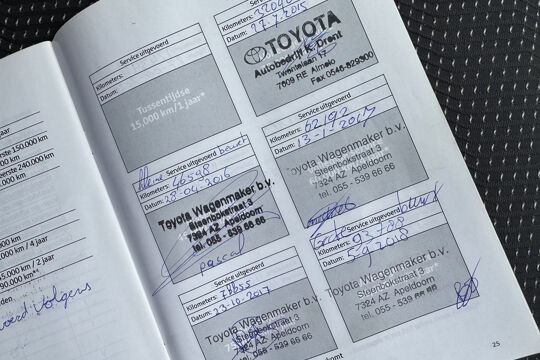 jaar
erste 150.000 km
00 km
erste 240.000 km
00 km
km
km / 4 jaar
5.000 km / 2 jaar
90.000 km*⁴
den
volgens
Service uitgevoerd
Kilometers:
Datum:
Tussentijdse
15.000 km/1 jaar*
Kleine
Service uitgevoerd
beurt
Kilometers: 46598
Datum: 28-04-2016
Toyota Wagenmaker b.v.
Steenbokstraat 3
7324 AZ Apeldoorn
tel. 055 - 539 66 66
Service uitgevoerd
Kilometers:
Datum: 27-10-2017
Toyota Wagenmaker b.v.
Steenbokstraat 3
7324 AZ Apeldoorn
tel. 055 - 539 66 66
Kilometers:
Datum: 27-7-2015
TOYOTA
Autobedrijf K. Drent
Twentelaan 17
7609 RE Almelo
Fax 0546-829300
Service uitgevoerd
Kilometers: 62192
Datum: 13-1-2017
Toyota Wagenmaker b.v.
Steenbokstraat 3
7324 AZ Apeldoorn
tel. 055 - 539 66 66
Service uitgevoerd
Kilometers: 93.788
Datum: 5-9-2018
Toyota Wagenmaker b.v.
Steenbokstraat 3
7324 AZ Apeldoorn
tel. 055 - 539 66 66
25